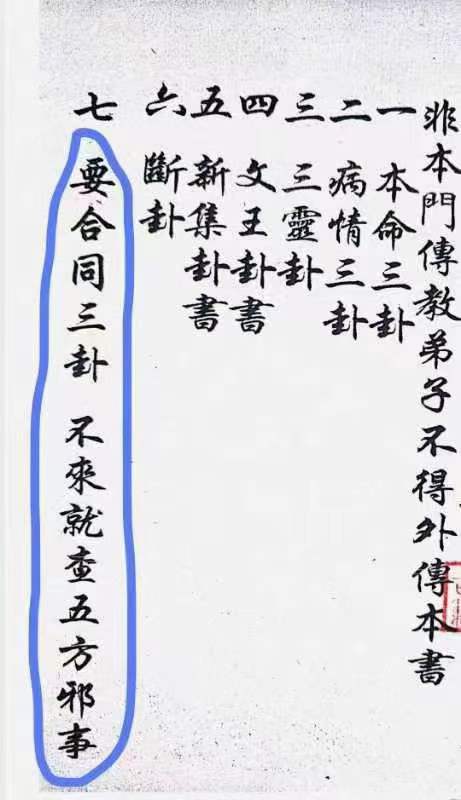 非本門傳教弟子不得外傳本書
一 本命三卦
二 病情三卦
三 三靈卦
四 文王卦書
五 新集卦書
六 斷卦
七 要合同三卦 不來就查五方邪事